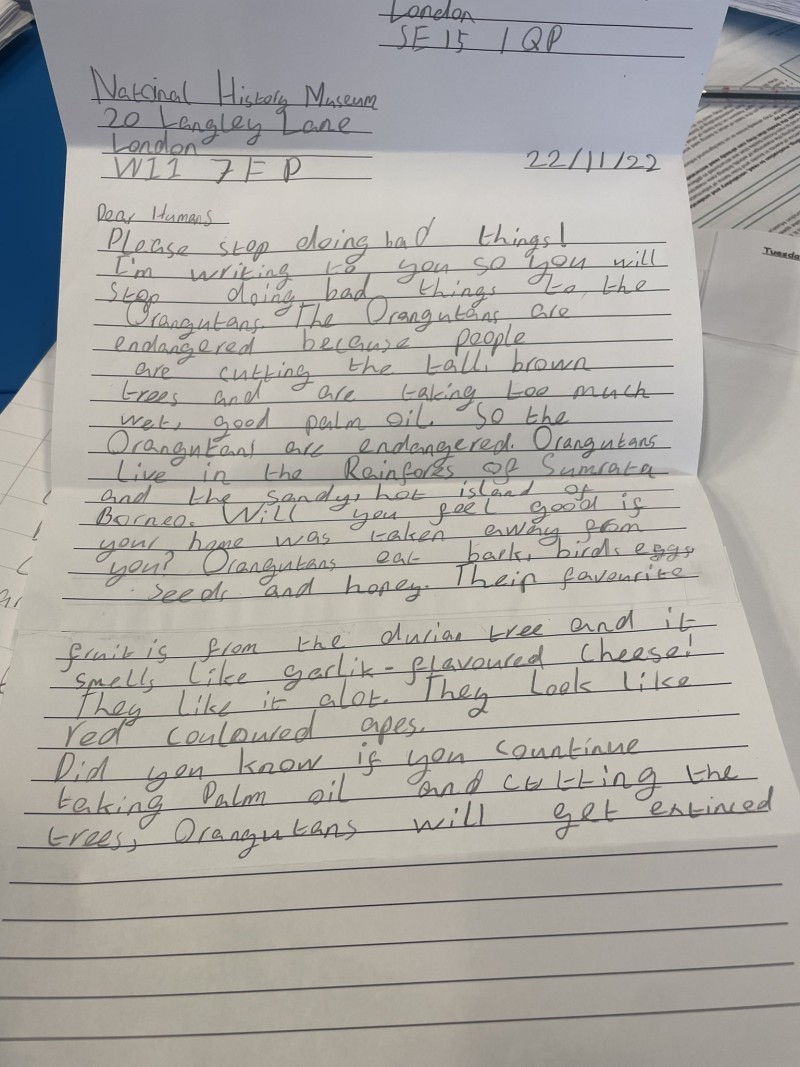 London
SE15 1QP
National History Museum
20 Langley Lane
London
W11 7EP
22/11/22
Dear Humans
Please stop doing bad things!
I'm writing to you so you will
stop doing bad things to the
Orangutans. The Orangutans are
endangered because people
are cutting the tall, brown
trees and are taking too much
wet, good palm oil. So the
Orangutans are endangered. Orangutans
Live in the Rainfores of Sumrata
and the sandy, hot island of
Borneo. Will you feel good if
your home was taken away from
you? Orangutans eat bark, birds eggs
seeds and honey. Their favourite
fruit is from the durian tree and it
smells like garlik-flavoured cheese!
They like it alot. They Look like
red couloured apes.
Did you know if you countinue
taking Palm oil and cutting the
trees, Orangutans will get extinced
Tuesda